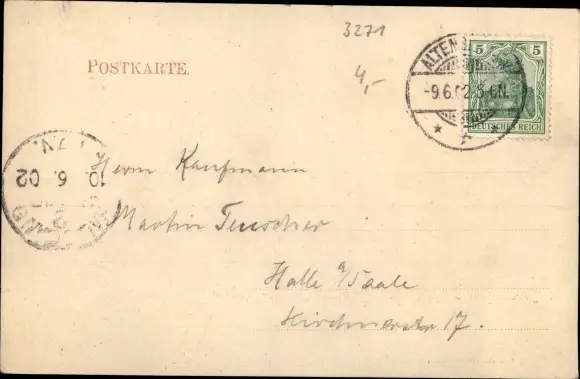 3271
POSTKARTE.
4,-
5 5
DEUTSCHES REICH
ALTEN
-9.6.02.5-6N.
10. 6. 02
Herrn Kaufmann
Martin Teuscher
Halle a/Saale
Kirchnerstr 17.